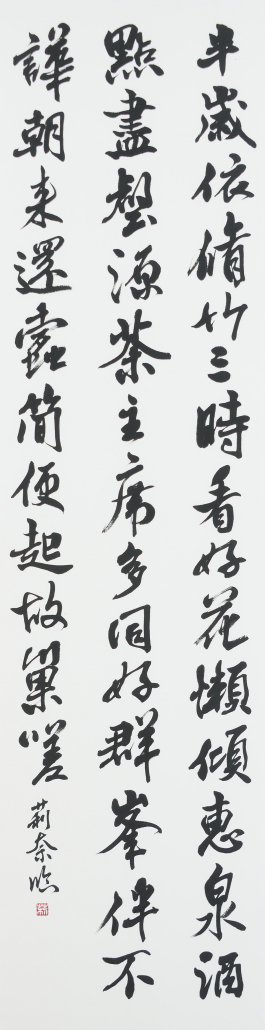 半歲依脩竹三時看好花懶傾惠泉酒
點盡壑源茶主席多同好群峯伴不
譁朝来還蠹簡便起故巢嗟
莉奈臨